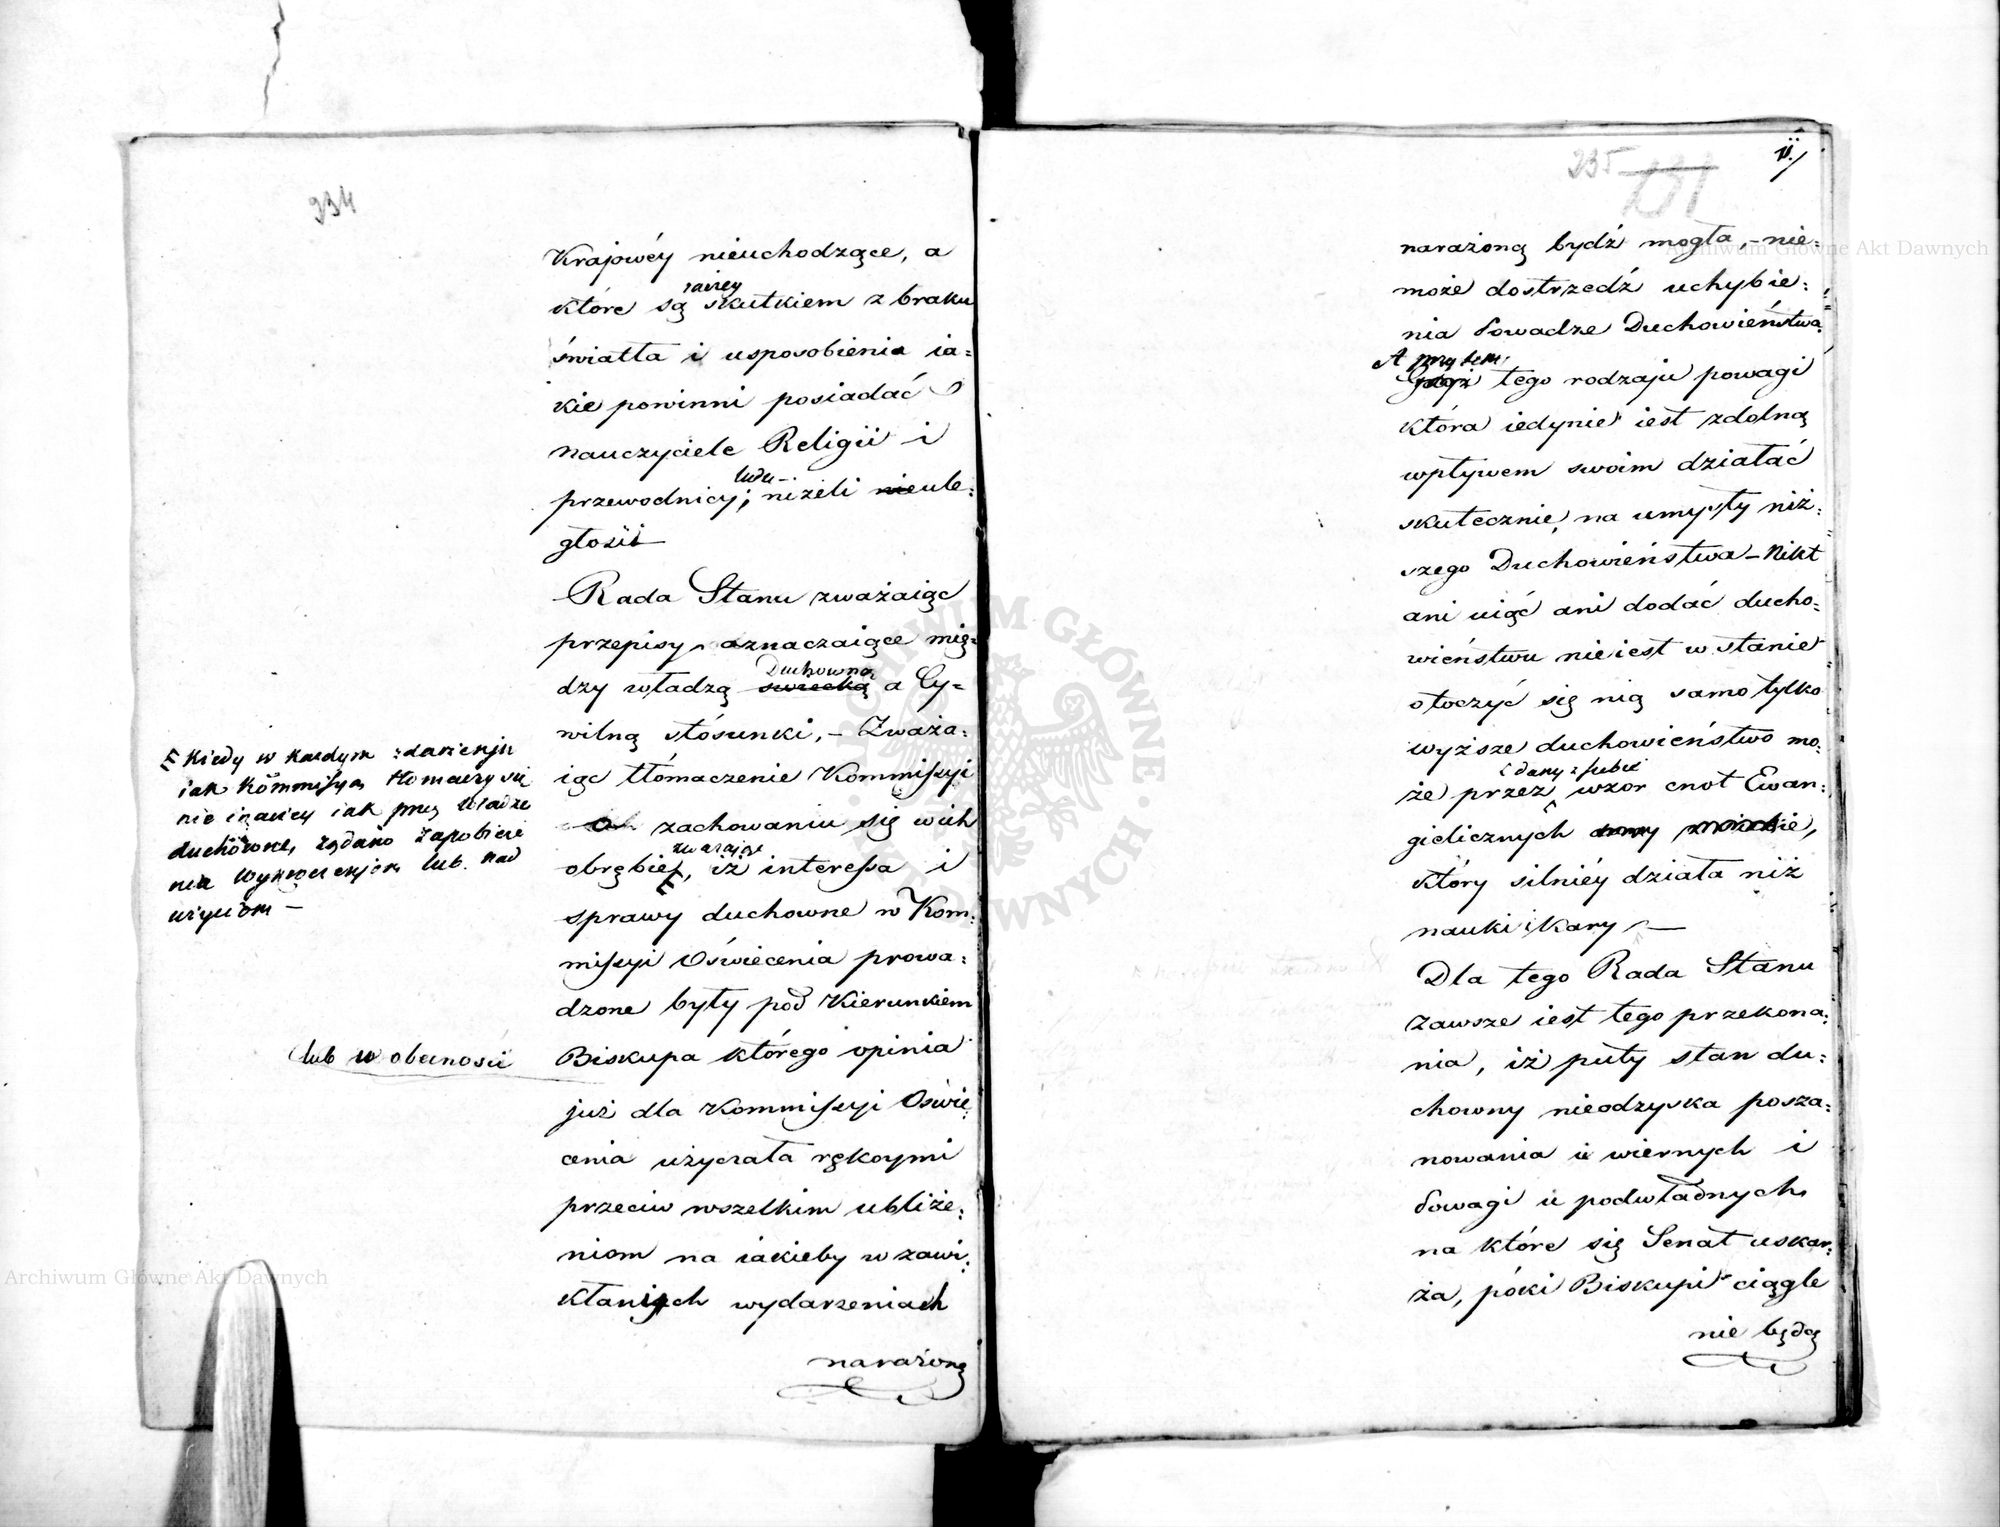 234
Krajowéy nieuchodzące, a
raczey
które są skutkiem z braku
światła i usposobienia ia=
kie powinni posiadać
nauczyciele Religii i
ludu
przewodnicy; niżeli nieule=
głości
Rada Stanu zważaiąc
przepisy oznaczaiące mię=
Duchowną
dzy władzą swiecką a Cy=
wilną stósunki, – Zważa=
iąc tłómaczenie Kommissyi
zachowaniu się w ich
zwazając
obrębie, iż interessa i
sprawy duchowne w Kom=
missyi Oświecenia prowa=
dzone były pod Kierunkiem
Biskupa którego opinia
już dla Kommissyi Oświe
cenia użyczała rękoymi
przeciw wszelkim ubliże=
niom na iakieby w zawi=
kłanych wydarzeniach
narażoną
Kiedy w kazdym zdarzeniu
iak Kommissya tłomaczy się
nie inaczey iak przez Władze
duchowne, żądano zapobieże
nia wykroczeniom lub nad
użyciom –
lub w obecności
235 131
11./
narażoną bydź mogła, – nie=
może dostrzedź uchybie=
nia Powadze Duchowieństwa
A przytem
tego rodzaju powagi
która iedynie iest zdolną
wpływem swoim działać
skutecznie, na umysły niż=
szego Duchowieństwa – Nikt
ani uiąć ani dodać ducho=
wieństwu nieiest w stanie
otoczyć się nią samo tylko
wyższe duchowieństwo mo=
i dany z siebie
że przez wzor cnot Ewan=
gielicznych
który silniéy działa niż
nauki i kary –
Dla tego Rada Stanu
zawsze iest tego przekona=
nia, iż puty stan du=
chowny nieodzyska posza=
nowania u wiernych i
Powagi u podwładnych
na które się Senat uskar=
ża, póki Biskupi ciągle
nie będą